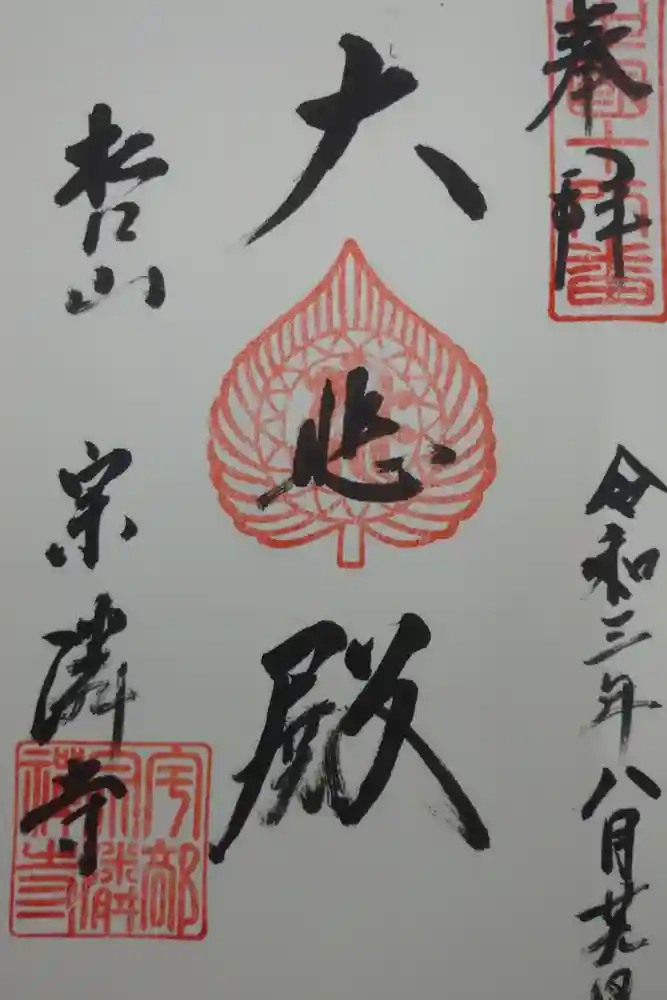 奉拝
令和三年八月廿四日
大悲殿
松江山
宗隣寺
宇部
宗隣
禅寺